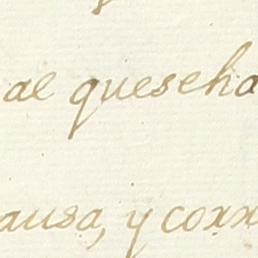 al que se ha
ausa, y corr